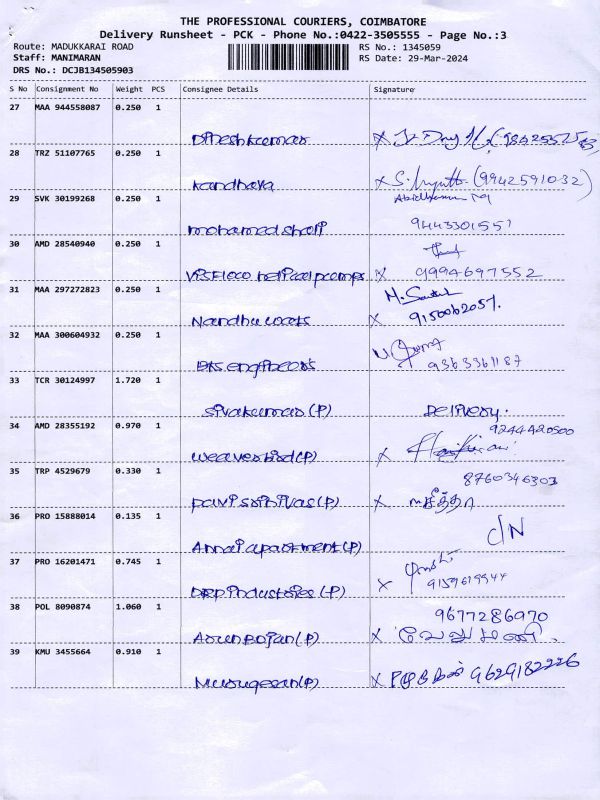 THE PROFESSIONAL COURIERS, COIMBATORE
Delivery Runsheet - PCK - Phone No.:0422-3505555 - Page No.:3
Route: MADUKKARAI ROAD RS No.: 1345059
Staff: MANIMARAN RS Date: 29-Mar-2024
DRS No.: DCJB134505903
S No Consignment No Weight PCS Consignee Details Signature
27 MAA 944558087 0.250 1
Dineshkumar X
28 TRZ 51107765 0.250 1
kandhava X S. (9942591032)
29 SVK 30199268 0.250 1
mohamed shafi 9443301551
30 AMD 28540940 0.250 1
X 9994697552
31 MAA 297272823 0.250 1
Nandhu X 9150062057.
32 MAA 300604932 0.250 1
engineers 9363361187
33 TCR 30124997 1.720 1
Sivakumar (P) Delivery.
34 AMD 28355192 0.970 1
9244420500
weaverbird (P) X
35 TRP 4529679 0.330 1
8760346303
pavi srinivas (P) X
36 PRO 15888014 0.135 1
C/N
Annai apartment (P)
37 PRO 16201471 0.745 1
DRP industries (P) X 9159619944
38 POL 8090874 1.060 1
9677286970
Arun Rojan (P) X வேலுமணி.
39 KMU 3455664 0.910 1
Murugesan (P) X முருகேசன் 9629182226